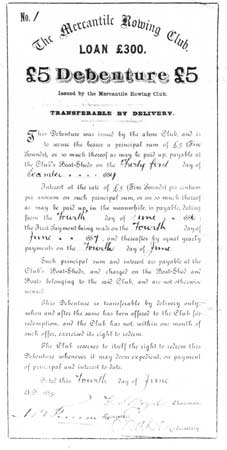 No. 1
The Mercantile Rowing Club.
LOAN £300.
£5 Debenture £5
Issued by the Mercantile Rowing Club.
TRANSFERABLE BY DELIVERY.
This Debenture was issued by the above Club, and is
to secure the bearer a principal sum of £5 (Five
Pounds), or so much thereof as may be paid up, payable at
the Club's Boat-Sheds on the Thirty first day of
Interest at the rate of £5 (Five Pounds) per centum
per annum on such principal sum, or on so much thereof
as may be paid up, in the meanwhile, is payable, dating
from the Fourth day of June
the First Payment being made on the Fourth day of
June and thereafter by equal yearly
payments on the Fourth day of June
Such principal sum and interest are payable at the
Club's Boat-Sheds, and charged on the Boat-Shed and
Boats belonging to the said Club, and are not otherwise
secured.
This Debenture is transferable by delivery only—
when and after the same has been offered to the Club for
redemption, and the Club has not, within one month of
such offer, exercised its right to redeem.
The Club reserves to itself the right to redeem this
Debenture whenever it may deem expedient, on payment
of principal and interest to date.
Dated this Fourth day of June
A.D.
Chairman.
Secretary.